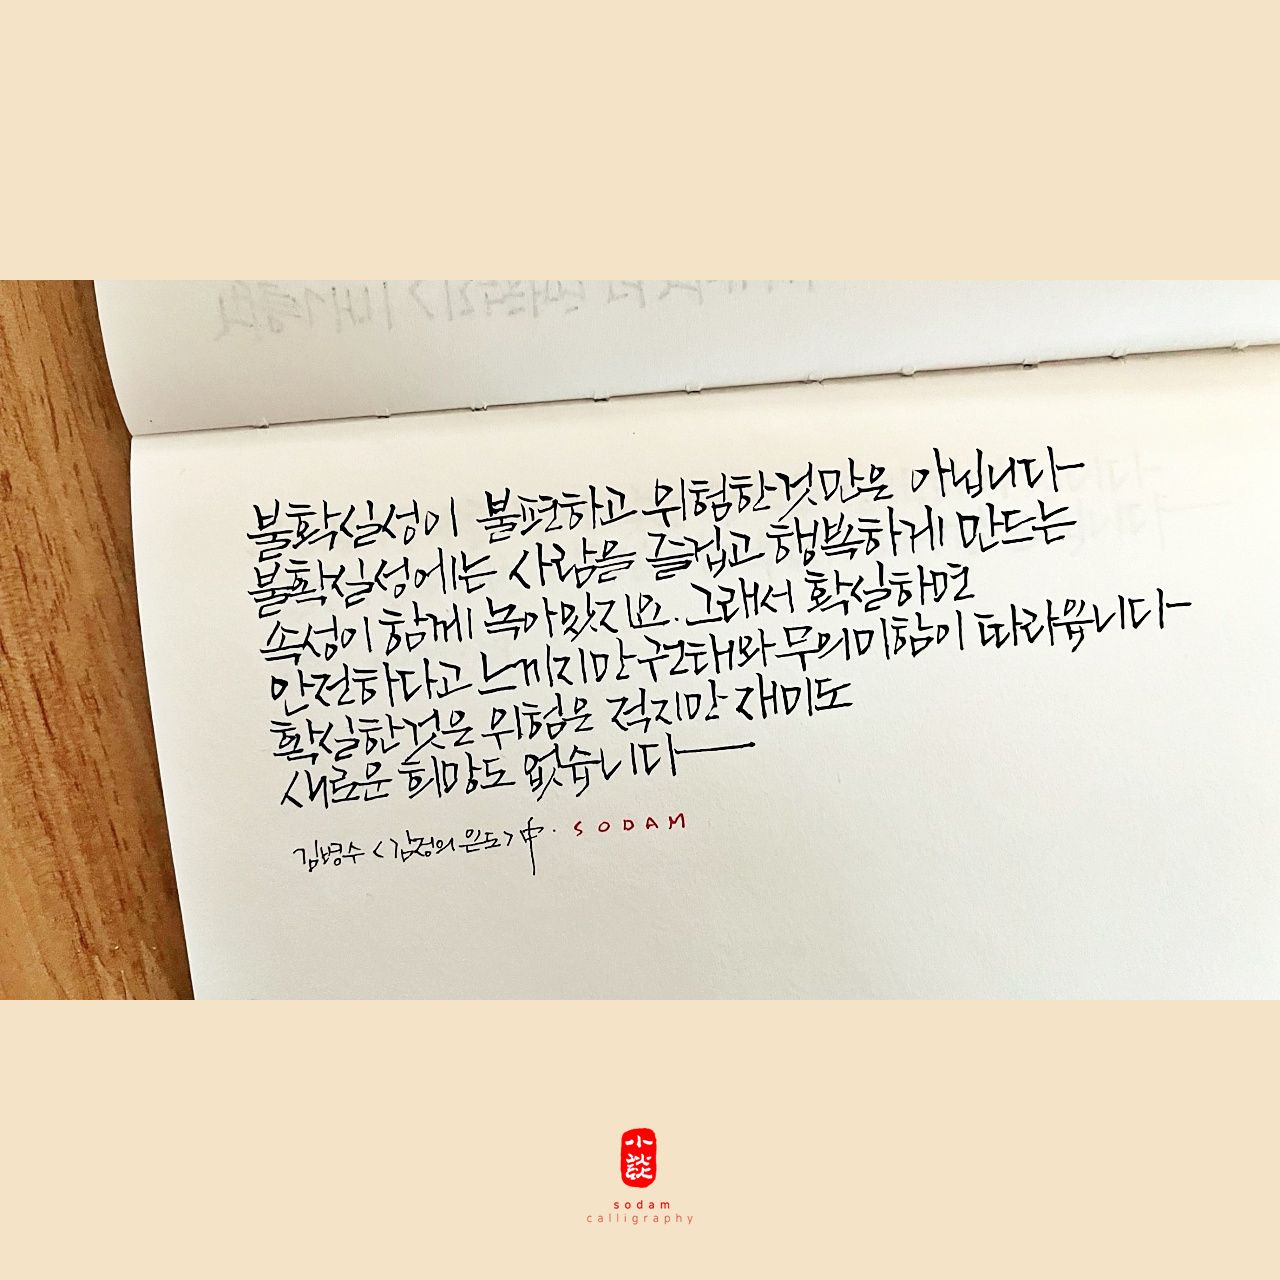 불확실성이 불편하고 위험한것만은 아닙니다
불확실성에는 사람을 즐겁고 행복하게 만드는
속성이 함께 녹아있지요. 그래서 확실하면
안전하다고 느끼지만 권태와 무의미함이 따라옵니다
확실한것은 위험은 적지만 재미도
새로운 희망도 없습니다
김병수 <감정의 온도> 中. SODAM
小談
sodam
calligraphy